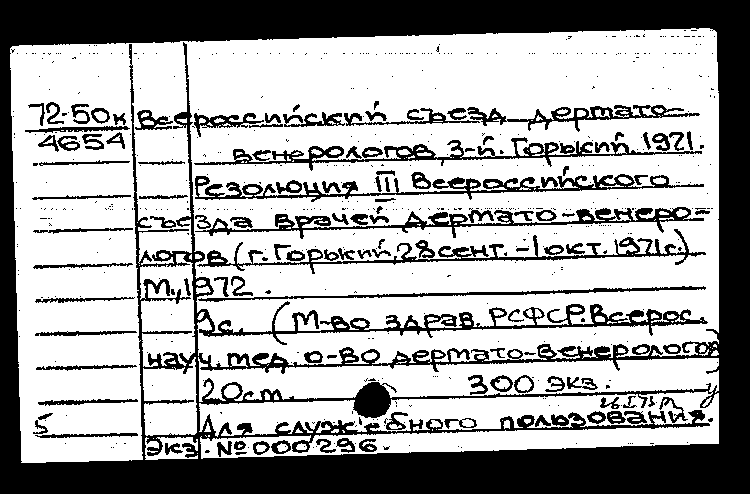 72-50к Всероссийский съезд дермато-
4654 венерологов, 3-й. Горький. 1971.
Резолюция III Всероссийского
съезда врачей дермато-венеро-
логов (г. Горький, 28 сент. - 1 окт. 1971 г.)
М., 1972.
9с. (М-во здрав. РСФСР. Всерос.
науч. мед. о-во дермато-венерологов)
20 см. 300 экз.
5 Для служебного пользования.
Экз. № 000296.